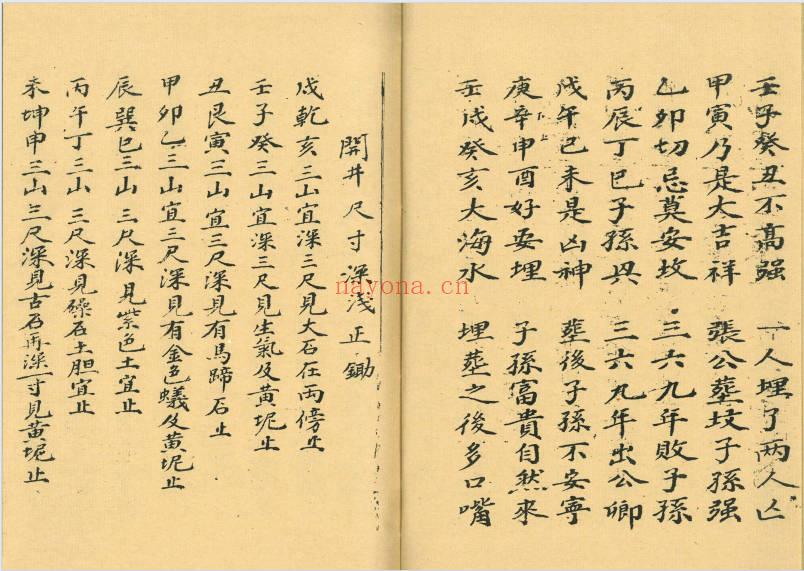 壬子癸丑不高强 一人埋了两人亡
甲寅乃是大吉祥 張公塟坟子孫强
乙卯切忌莫安坟 三六九年敗子孫
丙辰丁巳子孫兴 三六九年出公卿
戊午己未是凶神 塟後子孫不安寧
庚辛申酉好安埋 子孫富貴自然來
壬戌癸亥大海水 埋塟之後多口嘴
開井尺寸深浅正鋤
戌乾亥三山宜深三尺見大石在兩傍止
壬子癸三山宜深三尺見生氣及黃坭止
丑艮寅三山宜三尺深見有馬蹄石止
甲卯乙三山宜三尺深見有金色蟻及黃坭止
辰巽巳三山三尺深見紫色土宜止
丙午丁三山三尺深見磉石土胆宜止
未坤申三山三尺深見古石再深一寸見黃坭止
nayona.cn